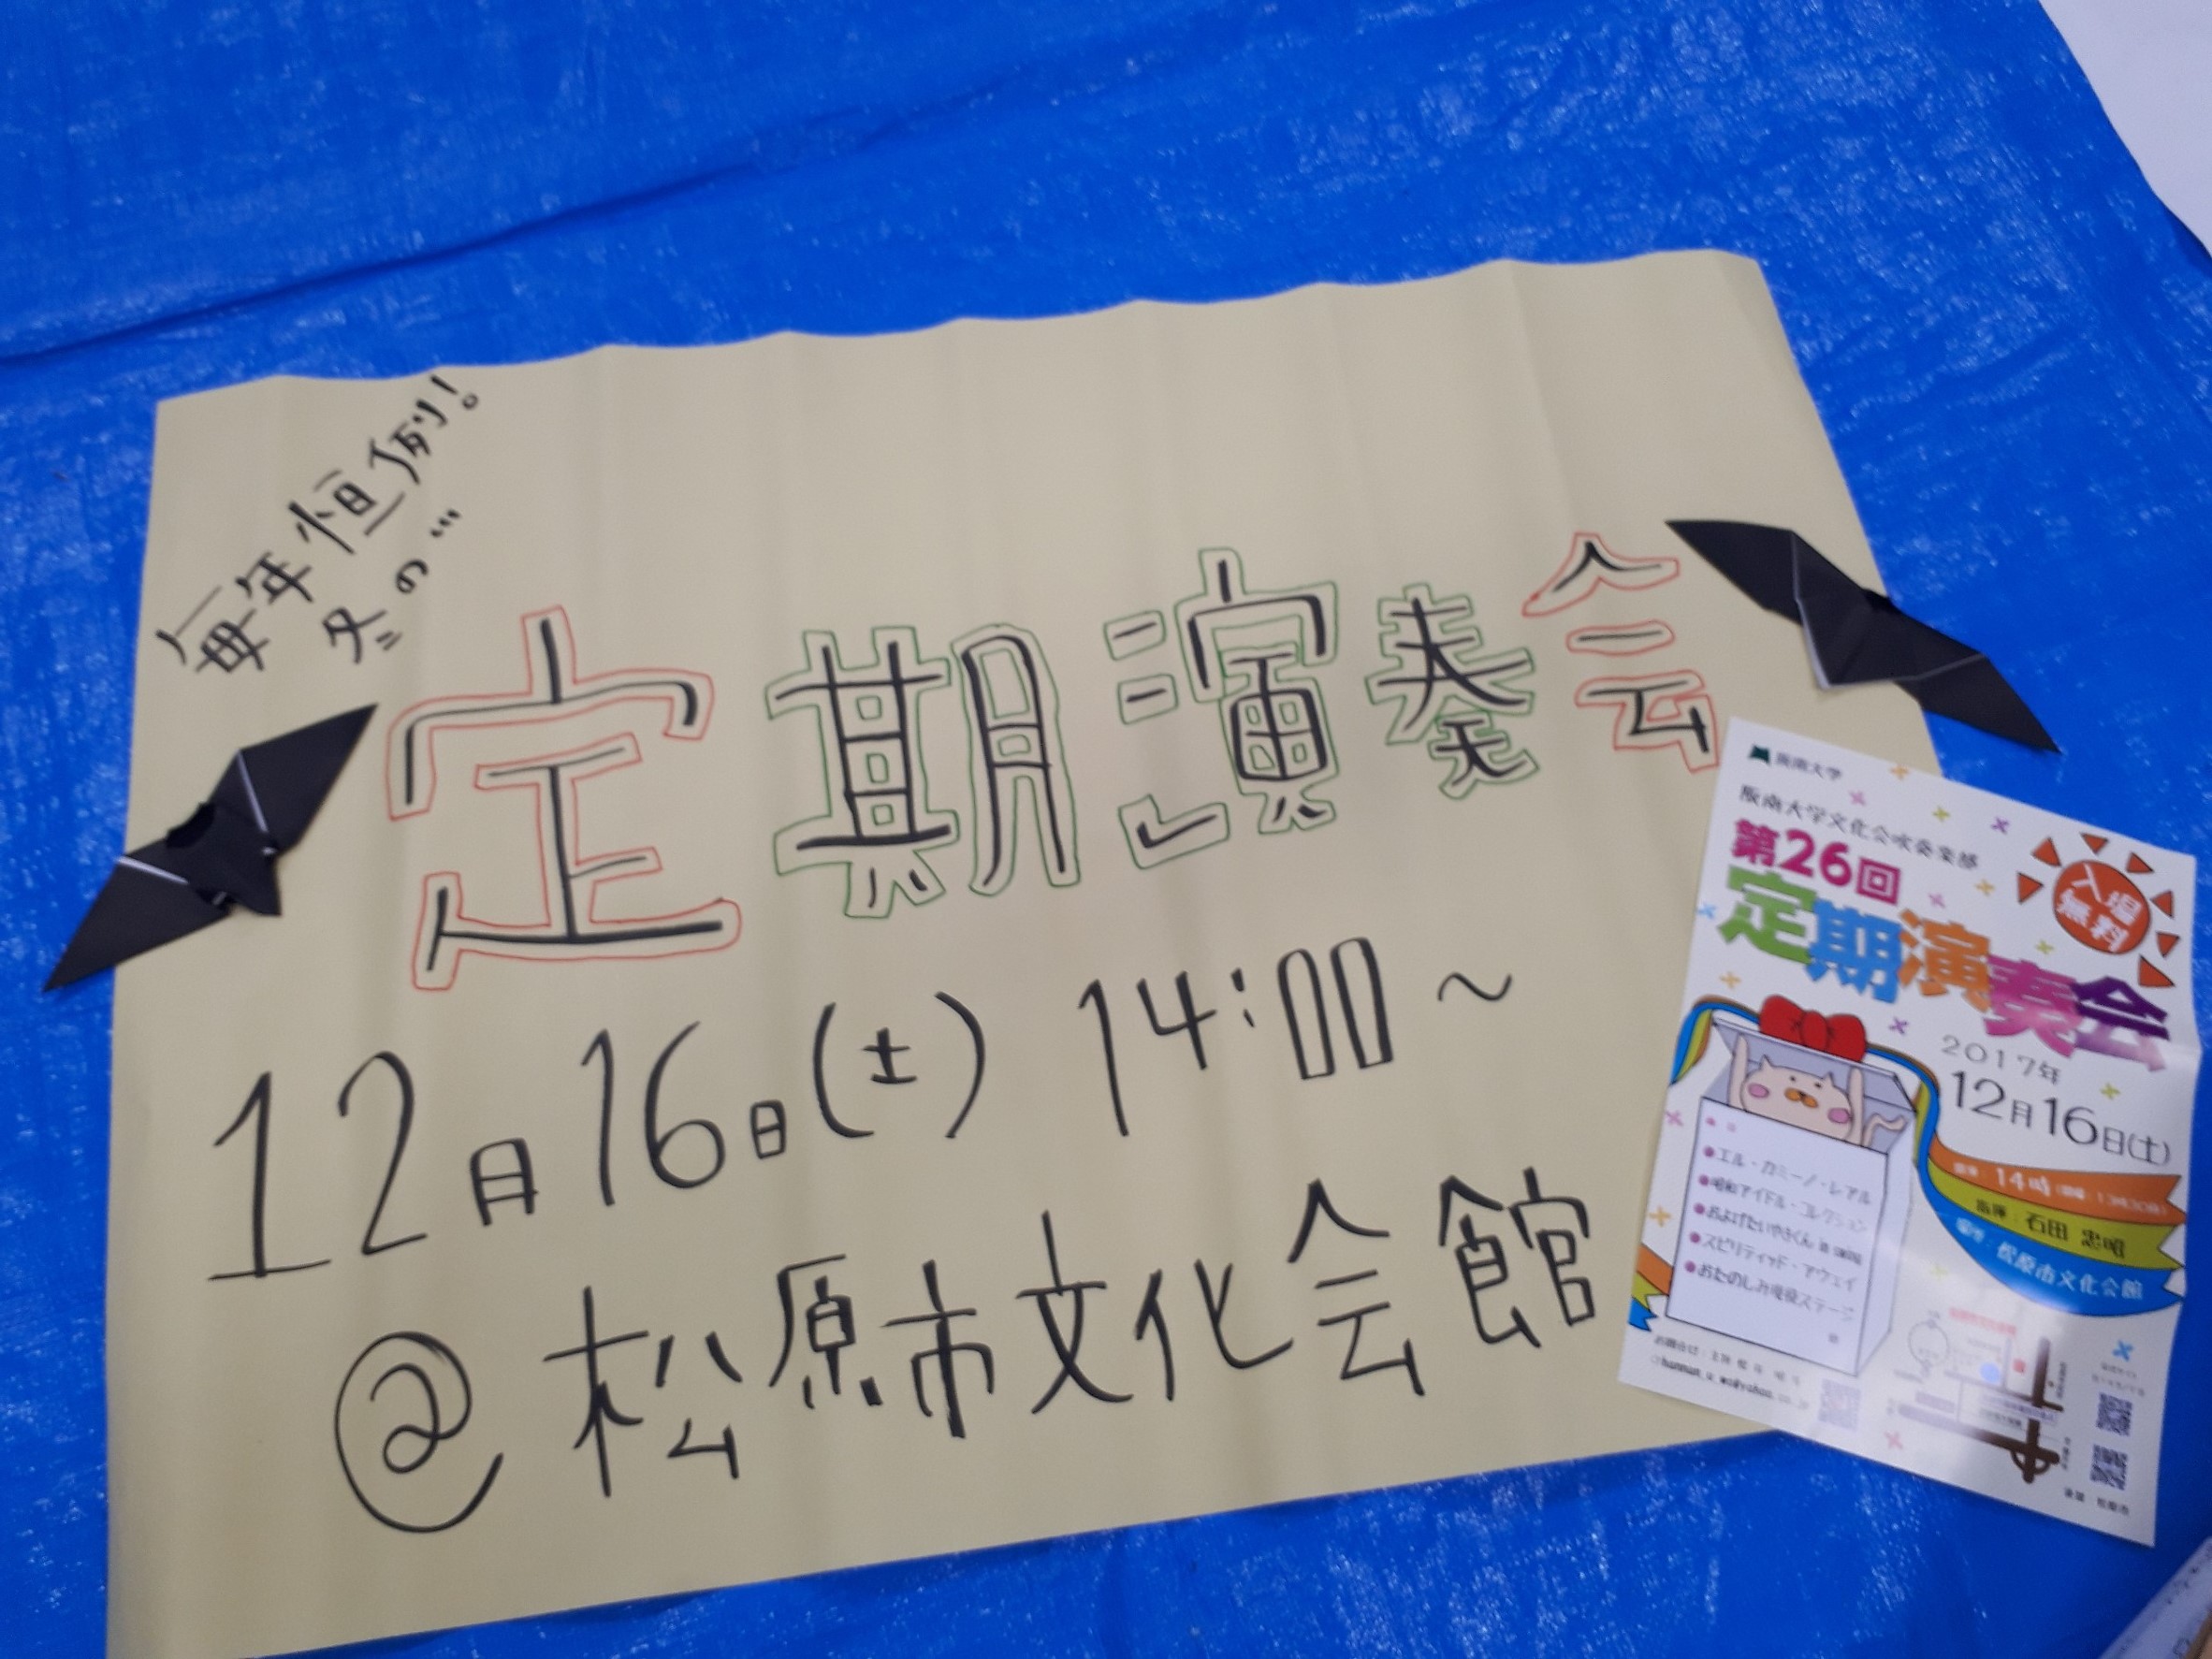 毎年恒例!
冬の…
定期演奏会
12月16日(土) 14:00~
@松原市文化会館
阪南大学
阪南大学文化会吹奏楽部
第26回
定期演奏会
入場
無料
2017年
12月16日(土)
14時
指揮:石田 忠昭
場所:松原市文化会館
●エル・カミーノ・レアル
●昭和アイドル・コレクション
●およげたいやきくん
●スピリティッド・アウェイ
●おたのしみ現役ステージ